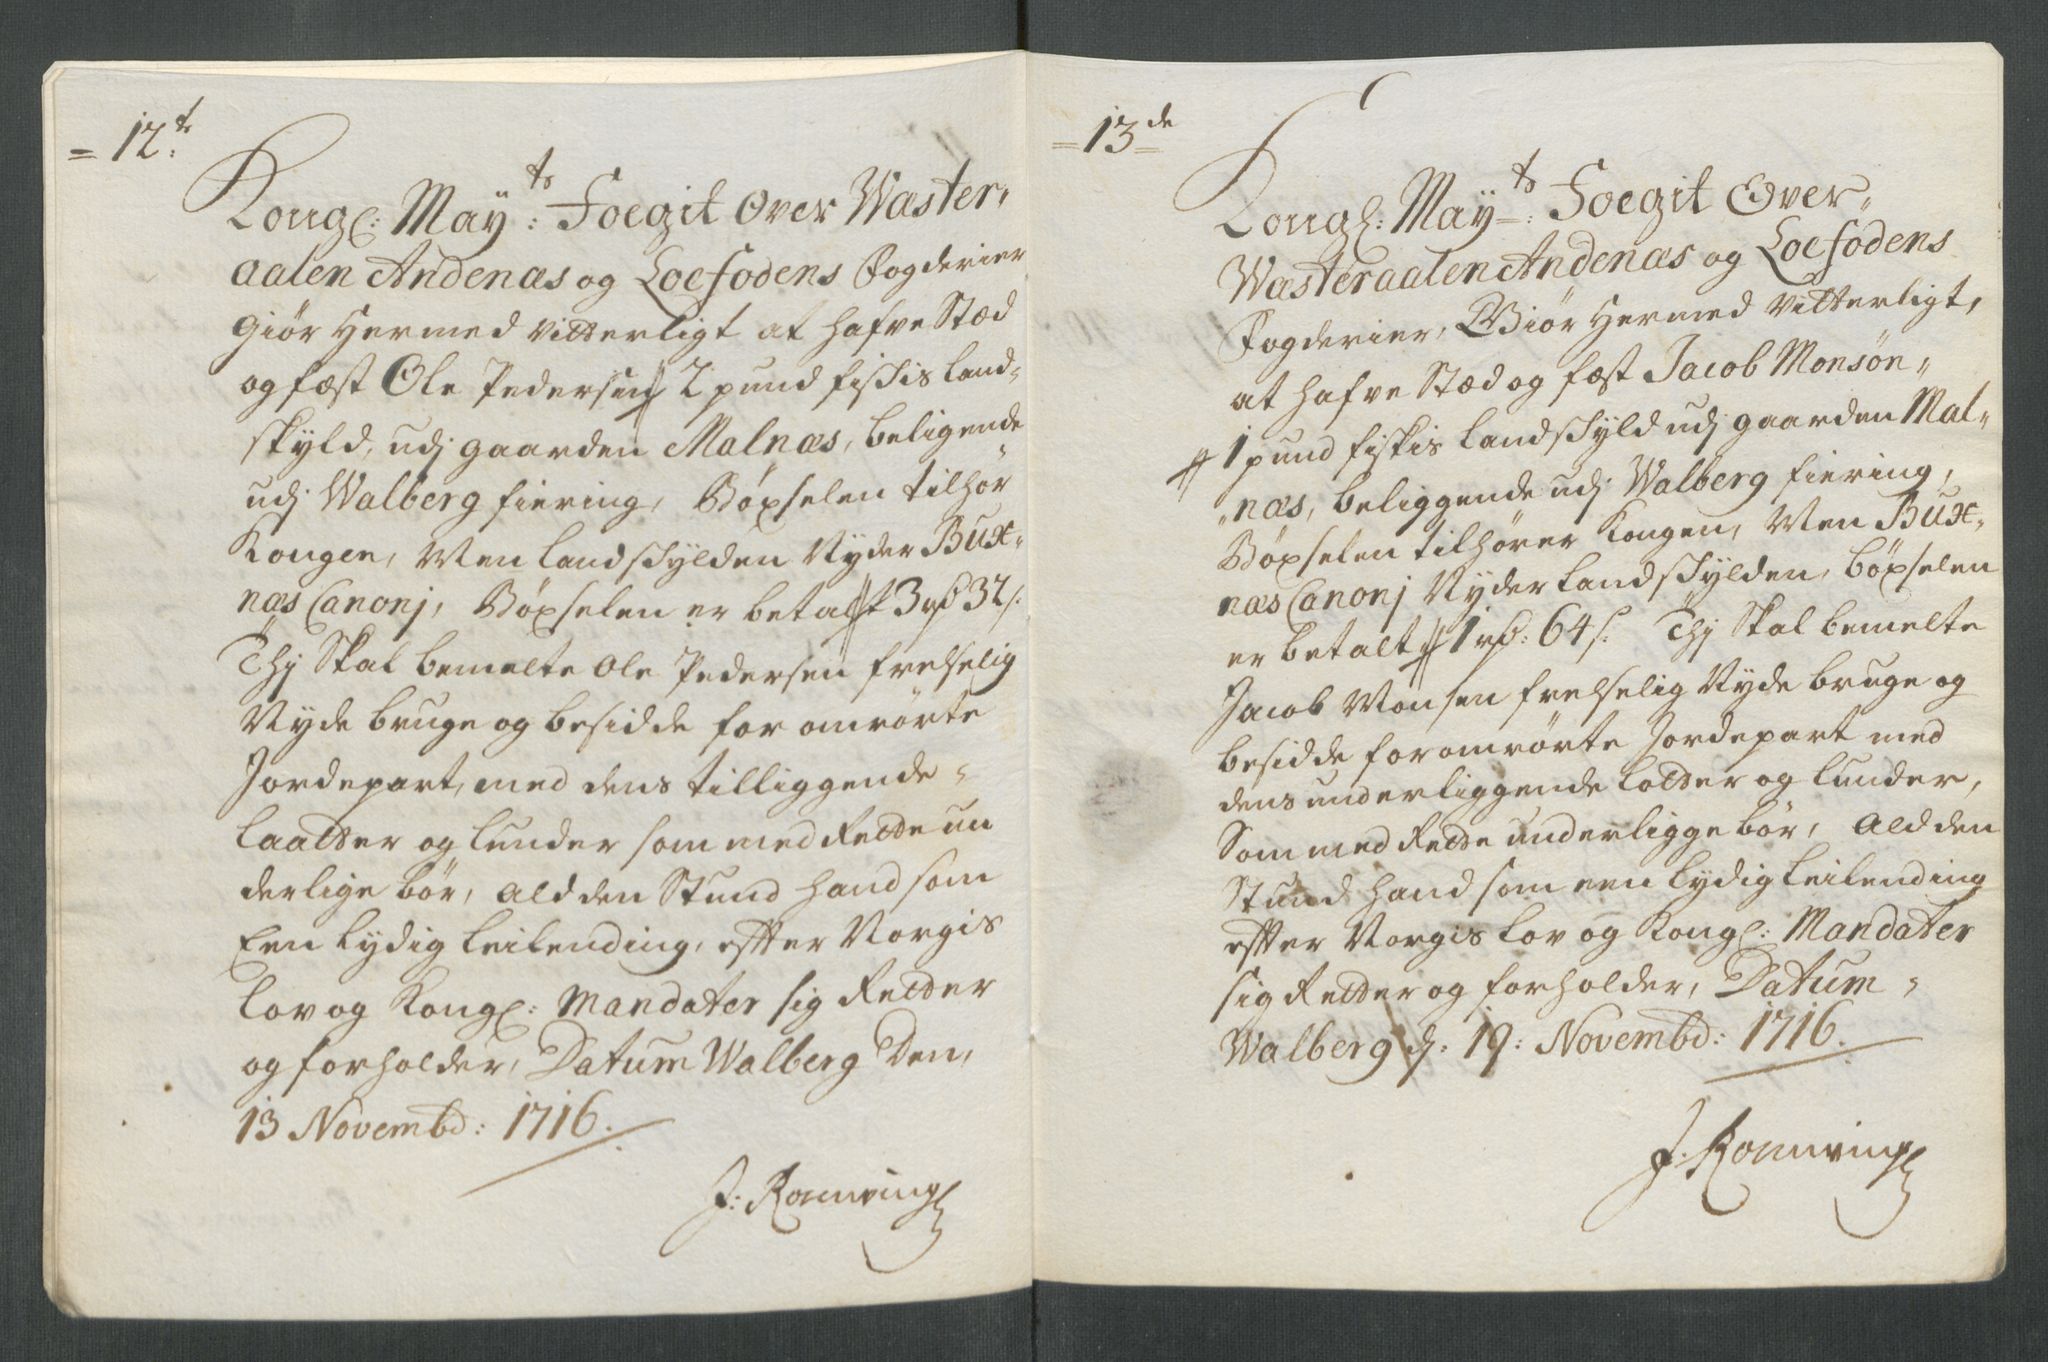 = 12.te
Kongl: May:ts Foegit Over Wæster-
aalen Andenæs og Loefodens Fogderier
Giør Hermed vitterligt at hafve Stæd
og fæst Ole Pedersen 2 pund fiskis land-
skyld, udj gaarden Malnæs, beligende
udj Walberg fiering, Bøxselen tilhør
Kongen, Men landskylden Nyder Bux-
næs Canonj, Bøxselen er betalt 3 rd 32 s.
Thj Skal bemelte Ole Pedersen frelselig
Nyde bruge og besidde for omrørte
Jordepart, med dens tilliggende-
laatter og lunder som med Rette un
derlige bør, ald den Stund hand som
Een lydig leilending, effter Norgis
lov og Kongl: Mandater sig Retter
og forholder, Datum Walberg Den,
13 Novembd: 1716.
J: Romving
= 13de
Kongl: May:ts Foegit Over-
Wæsteraalen Andenæs og Loefodens
Fogderier, Giør Hermed Vitterligt,
at hafve Stæd og fæst Jacob Monsøn-
1 pund fiskis landskyld udj gaarden Mal-
næs, beliggende udj Walberg fiering,
Bøxselen tilhører Kongen, Men Bux-
næs Canonj Nyder landskylden, bøxselen
er betalt 1 rd: 64 s. Thj Skal bemelte
Jacob Monsen frelselig Nyde bruge og
besidde foromrørte Jordepart med
dens underliggende lotter og lunder,
Som med Rette underligge bør, Ald den
Stund hand som een lydig leilending
effter Norgis lov og Kongl: Mandater
sig Retter og forholder, Datum-
Walberg d: 19: Novembd: 1716.
J. Romving